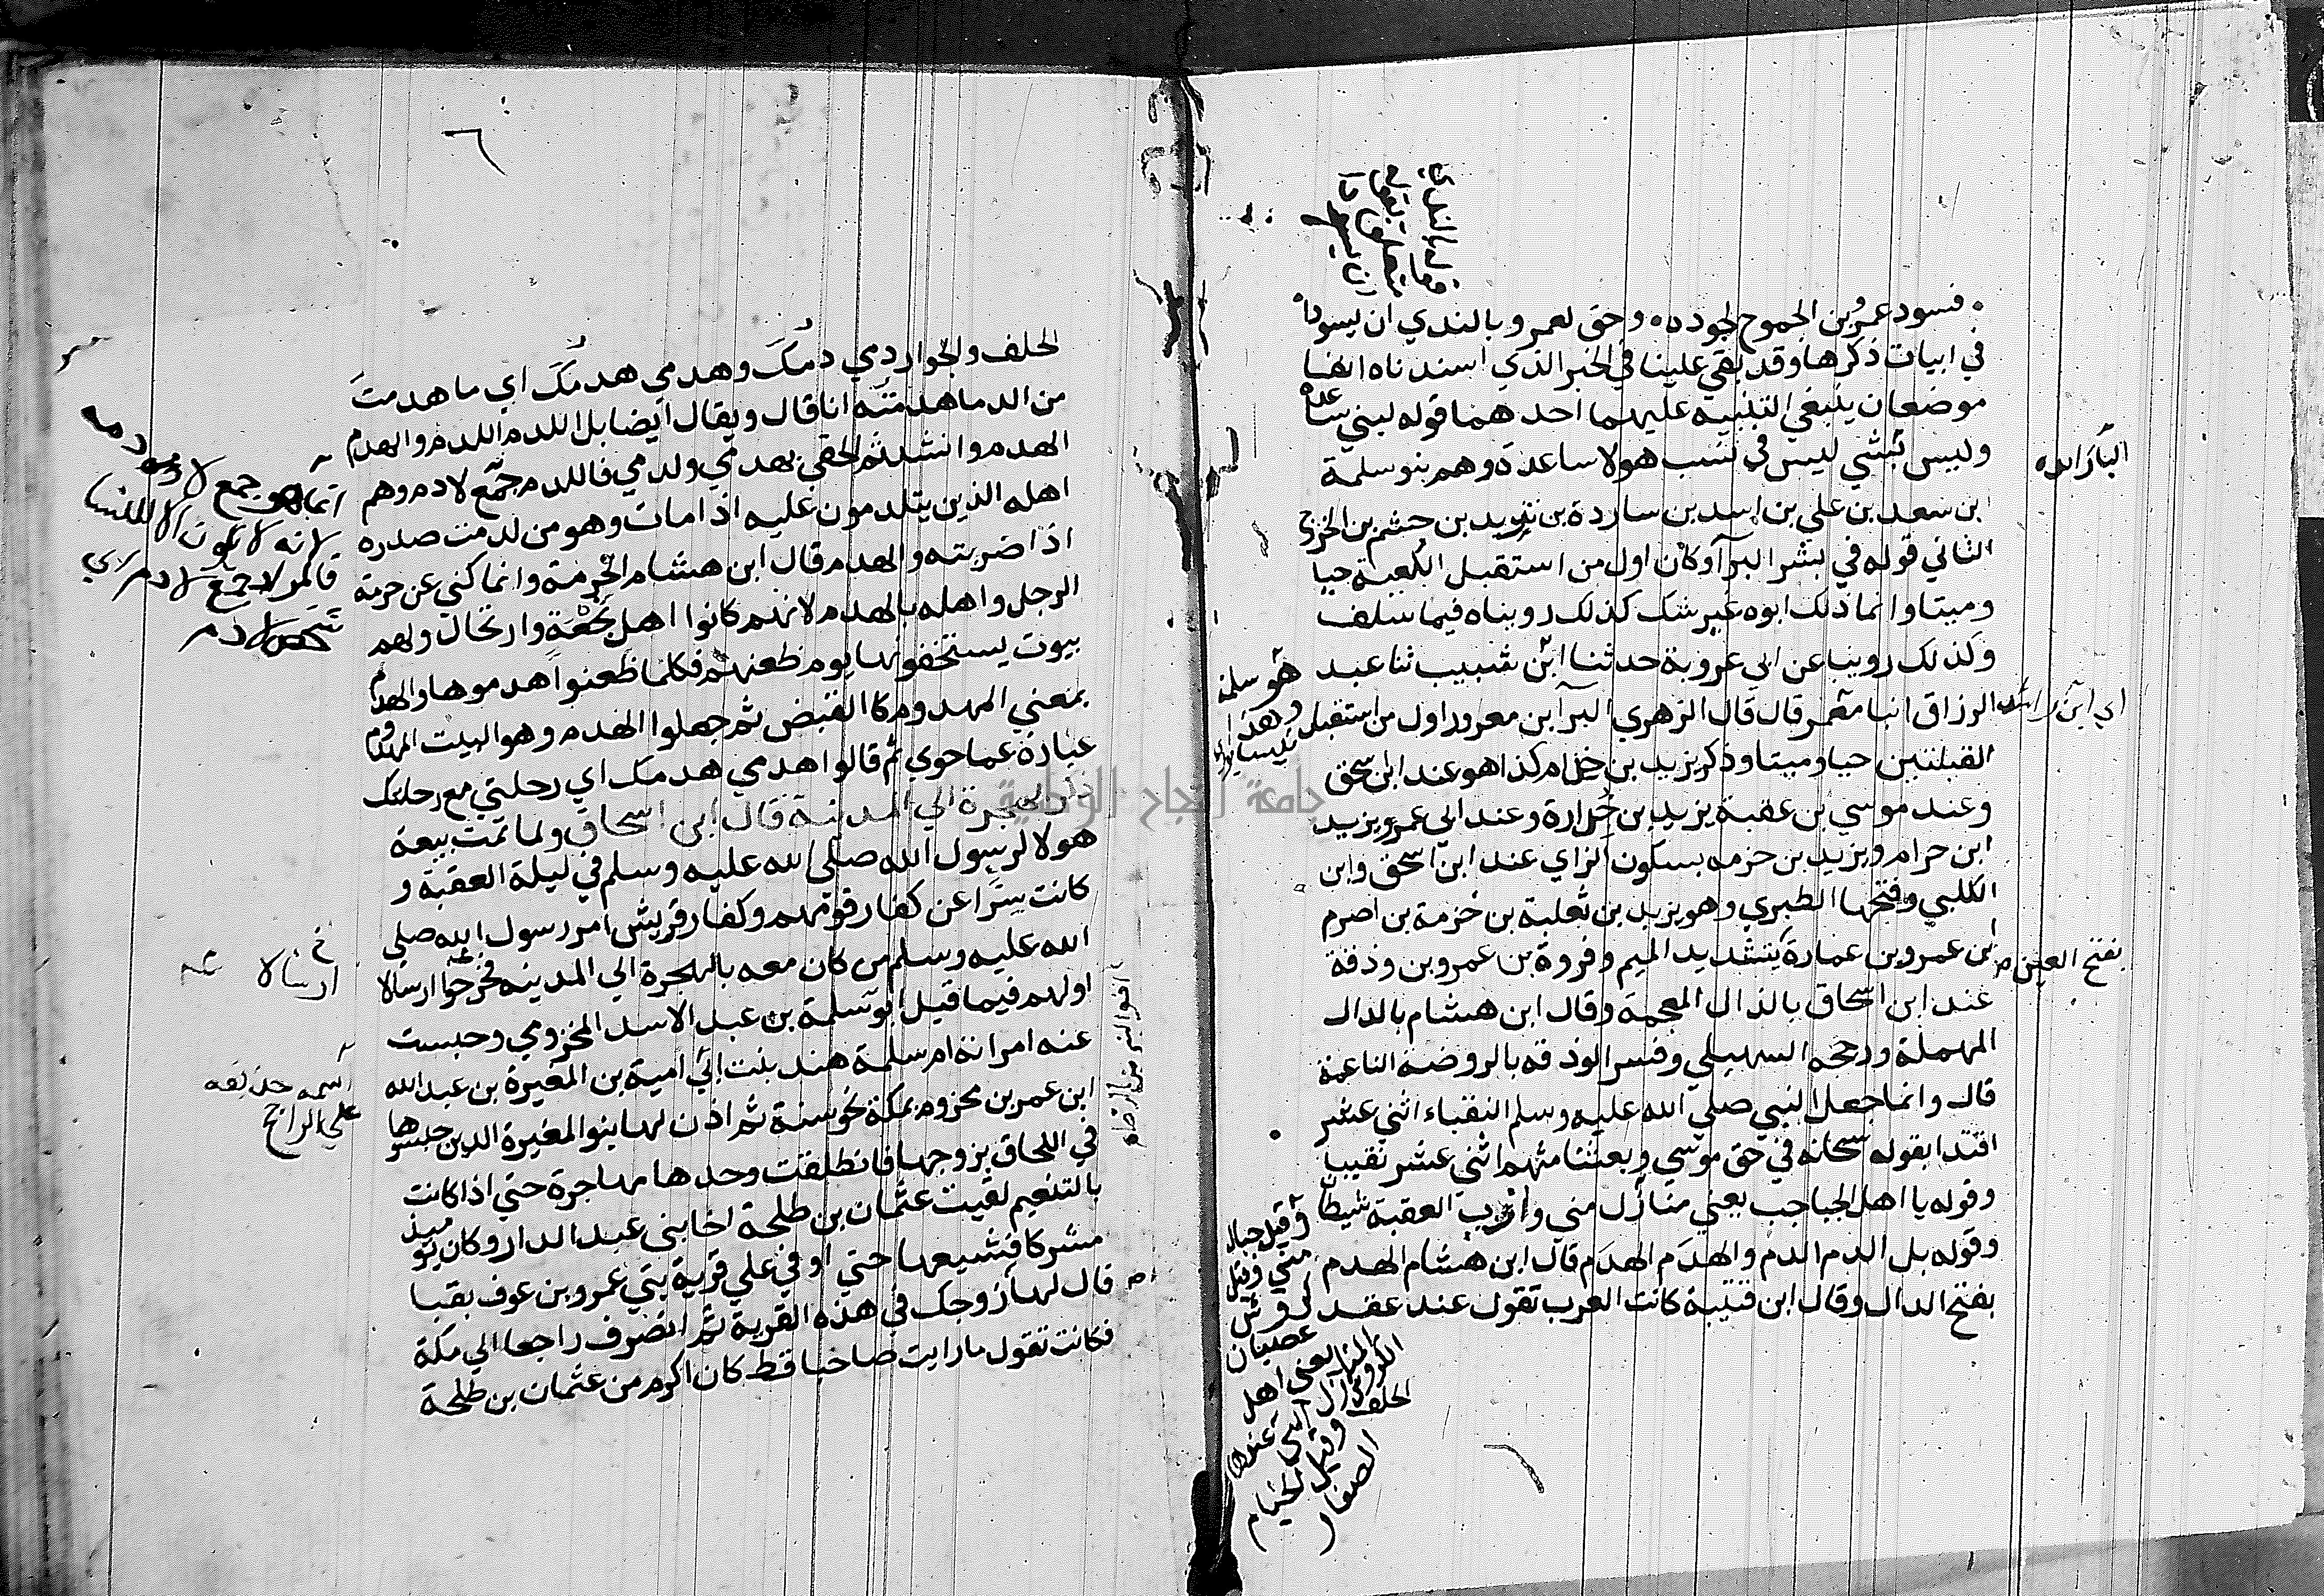 فسود عمرو بن الجموح لجوده وحق لعمرو بالندي ان يسودا
في ابيات ذكرها وقد بقي علينا في الخبر الذي اسندناه انفا
موضعان ينبغي التنبيه عليهما احدهما قوله لبني ساعدة
وليس بشي ليس في نسب هولا ساعدة وهم بنو سلمة
بن سعد بن علي بن اسد بن ساردة بن تزيد بن جشم بن الخزرج
الثاني قوله في بشر البرآ وكان اول من استقبل الكعبة حيا
وميتا وانما ذلك ابوه غير شك كذلك رويناه فيما سلف
وكذلك روينا عن ابي عروبة حدثنا ابن شبيب ثنا عبد
الرزاق انبا معمر قال قال الزهري البرآ بن معرور اول من استقبل
القبلتين حيا وميتا وذكر يزيد بن خزام كذا هو عند ابن اسحق
وعند موسي بن عقبة يزيد بن خزارة وعند ابي عمر يزيد
ابن حرام ويزيد بن خزمه بسكون الزاي عند ابن اسحق وابن
الكلبي وفتحها الطبري وهو يزيد بن ثعلبة بن خزمة بن اصرم
ابن عمرو بن عمارة بتشديد الميم وفروة بن عمرو بن وذفة
عند ابن اسحاق بالذال المعجمة وقال ابن هشام بالدال
المهملة ورجحه السهيلي وفسر الوذفه بالروضة الناعمة
قال وانما جعل النبي صلي الله عليه وسلم النقباء اثني عشر
اقتدا بقوله سبحانه في حق موسي وبعثنا منهم اثني عشر نقيبا
وقوله يا اهل الجباجب يعني منازل مني وازب العقبة شيطان
وقوله بل الدم الدم والهدم الهدم قال ابن هشام الهدم
بفتح الدال وقال ابن قتيبة كانت العرب تقول عند عقد
الحلف
بفتح العين
اي ابن راشد
هو سلمة
وقيل جبال
مني وقيل
الحلف والجوار دمي دمك وهدمي هدمك اي ما هدمت
من الدما هدمته انا قال ويقال ايضا بل اللدم اللدم والهدم
الهدم وانشد ثم الحقي بهدمي ولدمي فاللدم جمع لادم وهم
اهله الذين يتلدمون عليه اذا مات وهو من لدمت صدره
اذا ضربته والهدم قال ابن هشام الحرمة وانما كني عن حرمة
الرجل واهله بالهدم لانهم كانوا اهل نجعة وارتحال ولهم
بيوت يستخفونها يوم ظعنهم فكلما ظعنوا هدموها والهدم
بمعني المهدوم كالقبض ثم جعلوا الهدم وهو البيت المهدوم
عبارة عما حوي ثم قالوا هدمي هدمك اي رحلتي مع رحلتك
ذكر الهجرة الي المدينة قال ابن اسحاق ولما تمت بيعة
هولا لرسول الله صلي الله عليه وسلم في ليلة العقبة و
كانت سرا عن كفار قومهم وكفار قريش امر رسول الله صلي
الله عليه وسلم من كان معه بالهجرة الي المدينه فخرجوا ارسالا
اولهم فيما قيل ابو سلمة بن عبد الاسد المخزومي وحبست
عنه امراته ام سلمة هند بنت ابي امية بن المغيرة بن عبد الله
ابن عمر بن مخزوم بمكة نحو سنة ثم اذن لها بنو المغيرة الذين حبسوها
في اللحاق بزوجها فانطلقت وحدها مهاجرة حتي اذا كانت
بالتنعيم لقيت عثمان بن طلحة اخا بني عبد الدار وكان يوميذ
مشركا فشيعها حتي اوفي علي قرية بني عمرو بن عوف بقبا
قال لها زوجك في هذه القرية ثم انصرف راجعا الي مكة
فكانت تقول ما رايت صاحبا قط كان اكرم من عثمان بن طلحة
ارسالا
اسمه حذيفه
علي الراجح
جامعة النجاح الوطنية